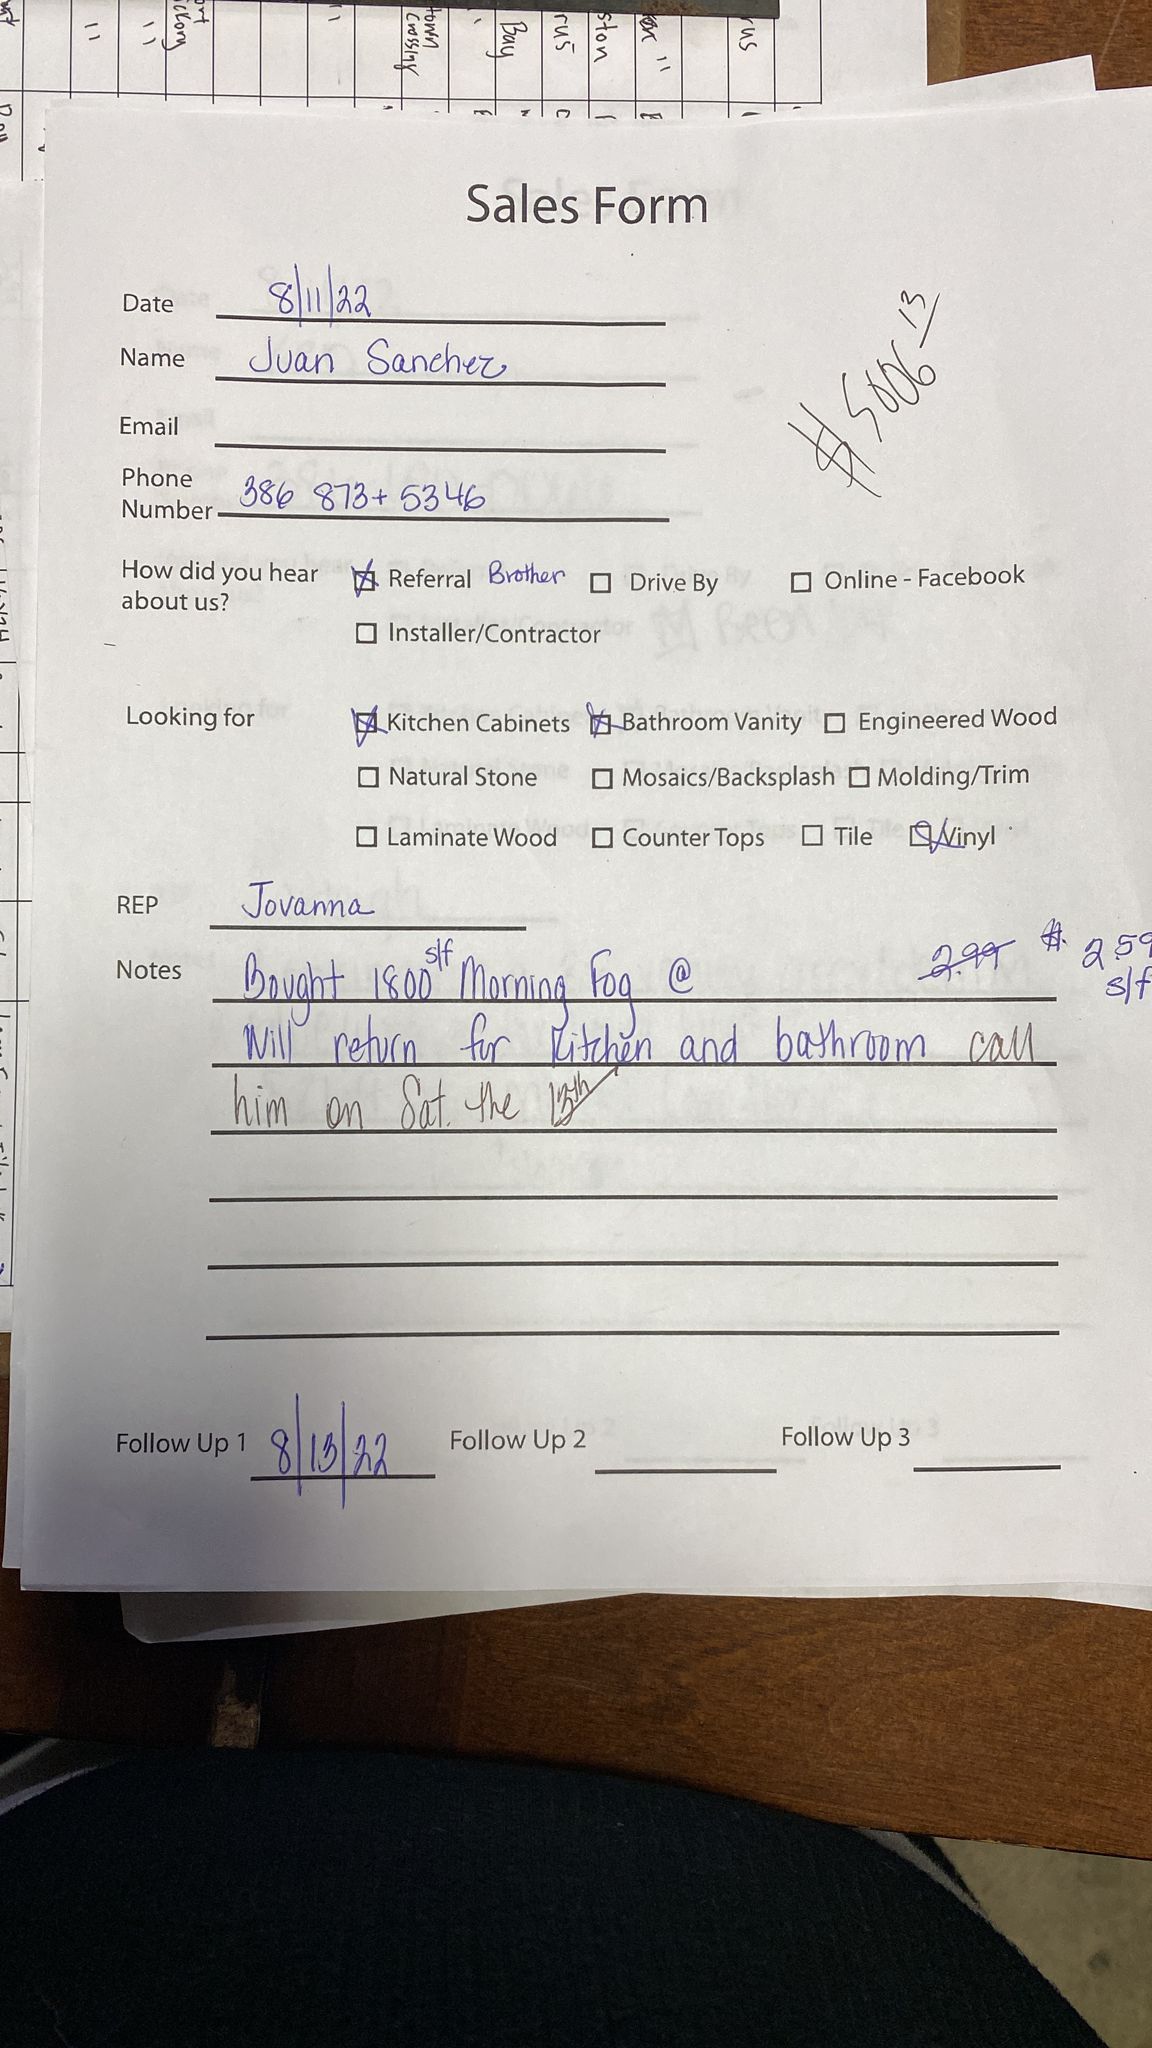 Sales Form
Date 8/11/22
Name Juan Sanchez
$5006 13
Email
Phone
Number 386 873+ 5346
How did you hear
about us?
Referral Brother Drive By Online - Facebook
Installer/Contractor
Looking for Kitchen Cabinets Bathroom Vanity Engineered Wood
Natural Stone Mosaics/Backsplash Molding/Trim
Laminate Wood Counter Tops Tile Vinyl
REP Jovanna
Notes Bought 1800 s/f Morning Fog @ 2.99 $. 2.59
s/f
Will return for kitchen and bathroom call
him on Sat. the 13th
Follow Up 1 8/13/22 Follow Up 2 Follow Up 3
town
crossing
Bay
rus
ston
rus